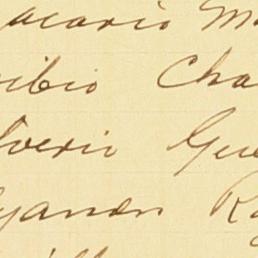 acario M
ibio Cha
verio Gue
yanon R